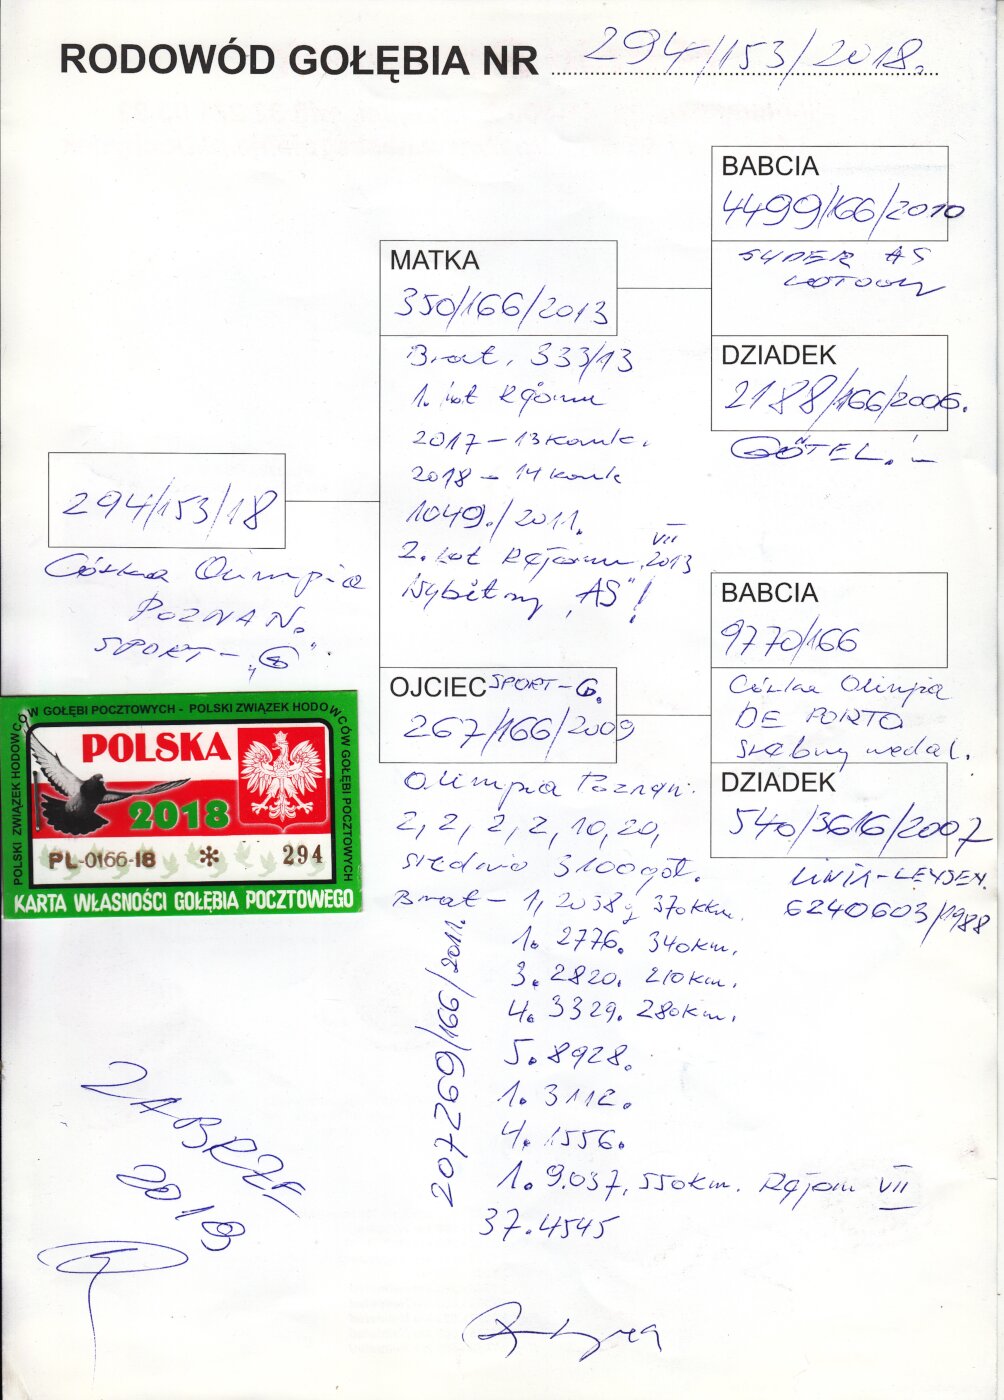 RODOWÓD GOŁĘBIA NR 294/153/2018.
BABCIA
4499/166/2010
SUPER AS
LOTOWY
MATKA
350/166/2013
Brat. 333/13
1. lot Rejonu
2017 - 13 konk.
2018 - 14 konk
1049./2011.
2. lot Rejonu VII 2013
Wybitny „AS"!
DZIADEK
2188/166/2006.
GÖTEL.
294/153/18
Córka Olimpia
POZNAŃ.
SPORT - „G".
BABCIA
9770/166
Córka Olimpia
DE PORTO
srebrny medal.
OJCIEC SPORT - G.
267/166/2009
Olimpia Poznań.
2, 2, 2, 2, 10, 20,
średnio 3100 goł.
Brat - 1, 2038g 370 km.
1. 2776. 340km.
3. 2820. 210km.
4. 3329. 280km.
5. 8928.
1. 3112.
4. 1556.
1. 9.037, 550km. Rejon VII
37. 4545
207269/166/2011.
DZIADEK
540/3616/2007
LINIA - LEYSEN.
6240603/1988
POLSKI ZWIĄZEK HODOWCÓW GOŁĘBI POCZTOWYCH - POLSKI ZWIĄZEK HODOWCÓW GOŁĘBI POCZTOWYCH
POLSKA
2018
PL-0166-18 * 294
KARTA WŁASNOŚCI GOŁĘBIA POCZTOWEGO
ZABRZE
2018